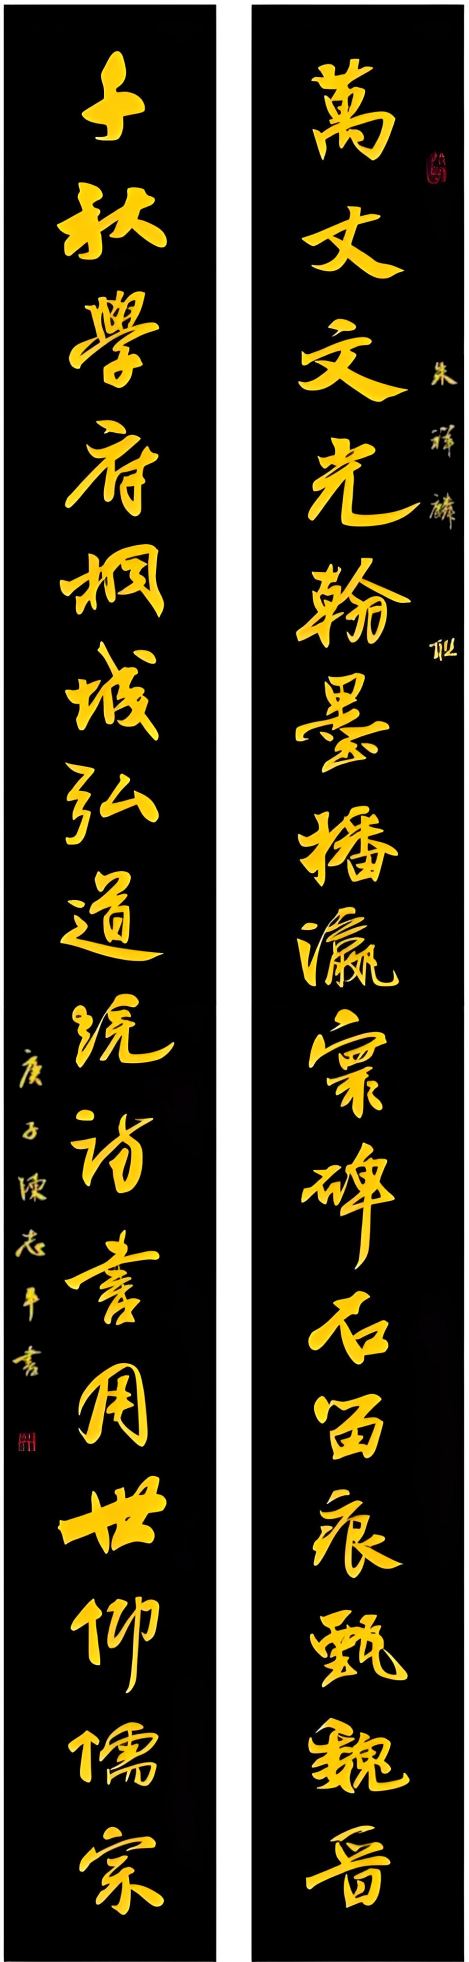 朱祥麟 联
萬丈文光翰墨播瀛寰碑石留痕甄魏晉
千秋學府桐城弘道統訪書用世仰儒宗
庚子陳志平書